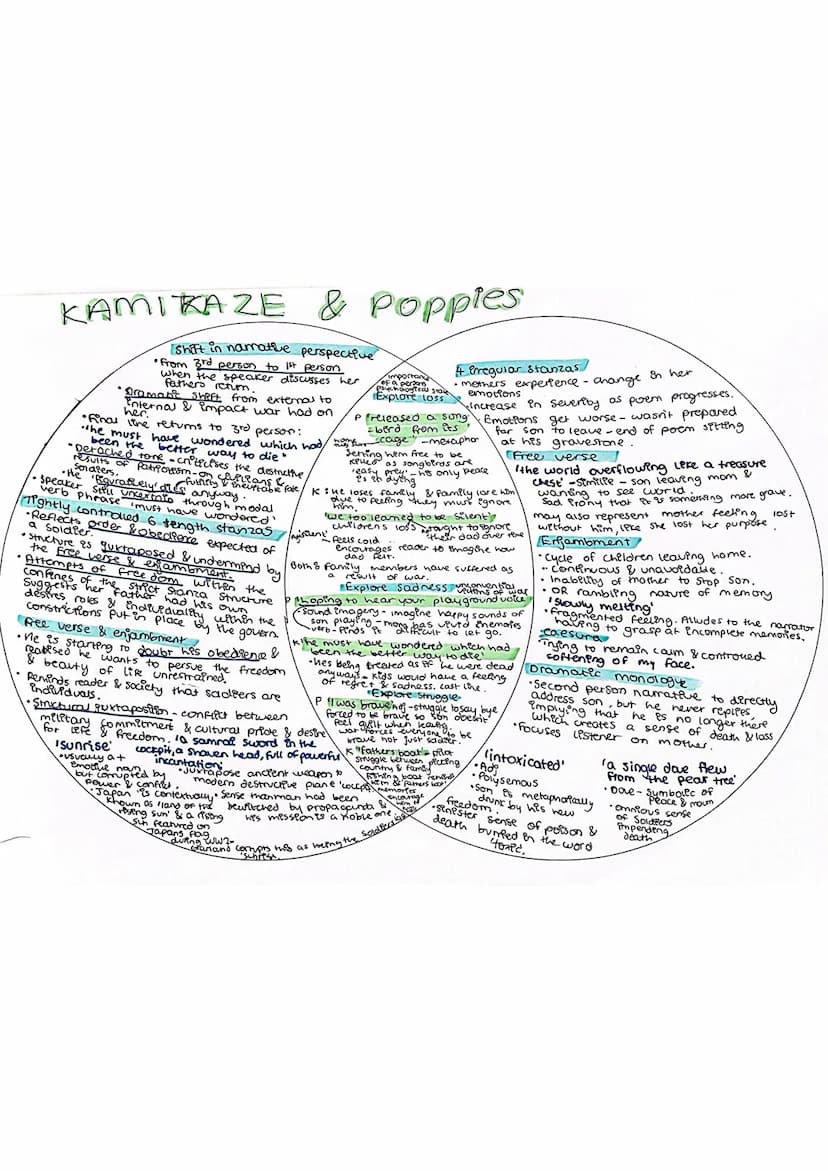 KAMIKAZE & POPPIES
Shift in narrative perspective
•From 3rd person to 1st person
when the speaker discusses her
fathers return.
•Dramatic shift from external to
internal & impact war had on
her.
•Final line returns to 3rd person:
'he must have wondered which had
been the better way to die"
•Detached tone - criticises the destructive
results of patriotism - on civilians &
soldiers.
•He 'figuratively dies' anyway.
•Speaker still uncertain through modal
verb phrase 'must have wondered'
Tightly controlled 6 length stanzas
•Reflects order & obedience expected of
a soldier.
•Structure is juxtaposed & undermind by
the free verse & enjambment.
•Attempts of freedom within the
confines of the strict stanza structure
suggests her father had his own
desires roles & individuality within the
constrictions put in place by the govern
Free verse & enjambment
•He is starting to doubt his obedience &
realised he wants to persue the freedom
& beauty of life unrestrained.
•Reminds reader & society that soldiers are
individuals.
•Structural juxtaposition - conflict between
military commitment & cultural pride & desire
for life & freedom.
'a samrai sword in the
cockpit, a shaven head, full of powerful
incantation'
•Juxtapose ancient weapon to
modern destructive plane 'cockpit'
•sense than man had been
bewitched by propaganda &
his mission is a noble one
'sunrise'
but corrupted by
power & conflict
•Japan is contextually
known as 'land of the
rising sun' & a rising
sun featured on
Japans flag
during WW2-
'sunrise'
importance
of a person
Explore loss
P 'released a song
-bird from its
cage' - metaphor
setting him free to be
killed as songbirds are
'easy prey' - his only peace
is in dying
K: He loses family & family lose him
due to feeling they must ignore
him.
'we too learned to be silent'
children's loss - taught to ignore
their dad over time
feels cold
encourages reader to imagine how
dad felt.
Both families members have suffered as
a result of war.
Explore sadness
unconventional
victims of war
P 'hoping to hear your playground voice
sound imagery - imagine happy sounds of
son playing - mom has vivid memories
verb - finds it difficult to let go.
K 'he must have wondered which had
been the better way to die'
•Hes being treated as if he were dead
anyways - kids would have a feeling
of regret & sadness. last line.
Explore Struggle
P 'I was brave' - struggle to say bye
forced to be brave so son doesnt
feel guilt when leaving.
war forces everyone to be
brave not just soldier.
K "fathers boat" - pilot
struggle between picking
country & family
fishing boat reminds
him of fathers boat
memories
encourage
4 irregular stanzas
•mothers experience - change in her
emotions
•Increase in severity as poem progresses.
•Emotions get worse - wasn't prepared
for son to leave - end of poem sitting
at his gravestone.
Free verse
'the world overflowing like a treasure
chest' - simile - son leaving mom &
wanting to see world.
Sad irony that it is something more grave.
may also represent mother feeling lost
without him, like she lost her purpose.
Enjambment
•Cycle of children leaving home.
•Continuous & unavoidable.
•Inability of mother to stop son.
•OR rambling nature of memory
'slowly melting'
•fragmented feeling. Alludes to the narrator
having to grasp at incomplete memories.
Caesura
'Trying to remain calm & controlled
softening of my face.
Dramatic monologue
•Second person narrative to directly
address son, but he never replies
implying that he is no longer there
which creates a sense of death & loss
•Focuses listener on mother.
'intoxicated'
•Adj
•Polysemous
•Son is metaphorially
drunk by his new
freedom.
•Sinister sense of poison &
death burried in the word
'toxic'.
'a single dove flew
from 'the pear tree'
•Dove - symbolic of
peace & mourn
•Omnious sense
of soldiers
impending
death